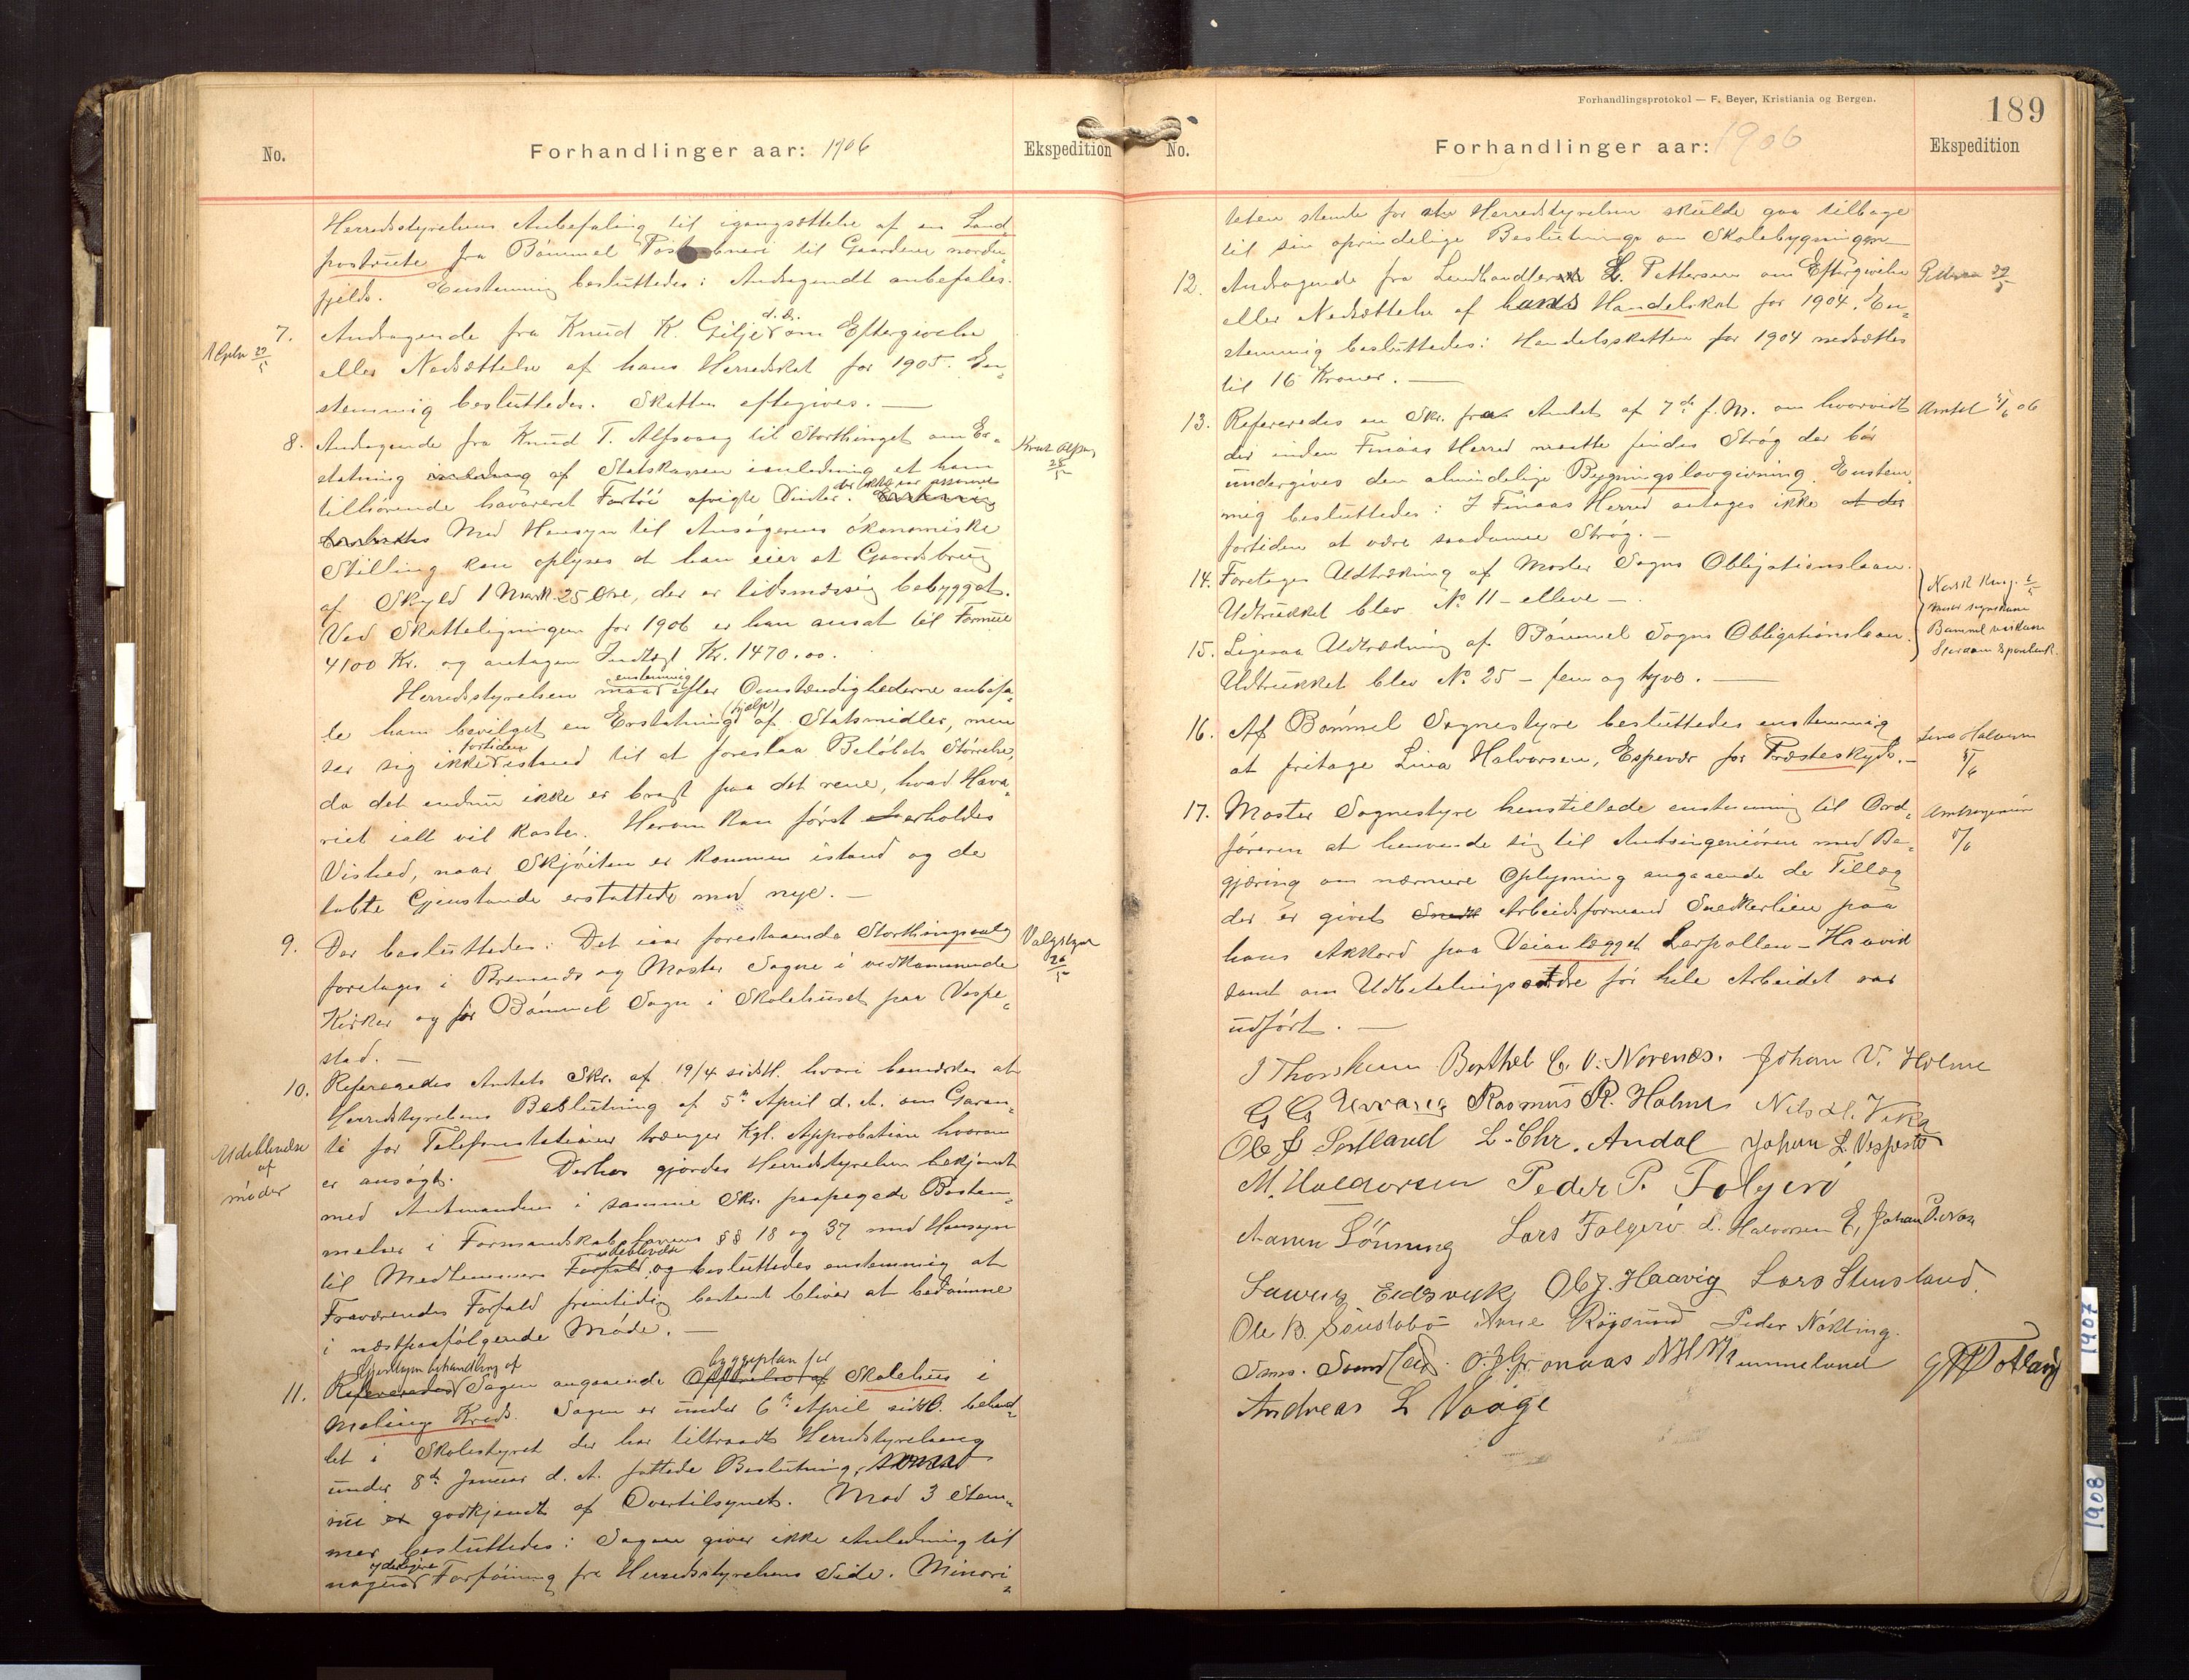 No.
Forhandlinger aar: 1906
Ekspedition
Herredsstyrelsens Anbefaling til igangsættelse af en Land-
postrute fra Bømmel Postaabneri til Gaardene norden-
fjelds. Enstemmig besluttedes: Andragendet anbefales.
7. Andragende fra Knud K. Gilje d. æ. om Eftergivelse
eller Nedsættelse af hans Herredskat for 1905. En-
stemmig besluttedes. Skatten eftegives. —
8. Andragende fra Knud T. Alfsvaag til Storthinget om Er-
Knut Alfsvaag 28/5
statning af Statskassen i anledning et ham
tilhørende havareret Fartøi afvigte Vinter. der ikke var assureret
Med Hensyn til Ansøgerens økonomiske
Stilling kan oplyses at han eier et Gaardsbrug
af Skyld 1 Mark 25 Øre, der er tidsmæssig bebygget.
Ved Skatteligningen for 1906 er han ansat til Formue
4100 Kr. og antagen Indtægt Kr. 1470.00.
Herredsstyrelsen maa enstemmig efter Omstændighederne anbefa-
le ham bevilget en Erstatning (hjelp) af Statsmidler, men
ser sig ikke fortiden istand til at foreslaa Beløbets Størrelse,
da det endnu ikke er bragt paa det rene, hvad Hava-
riet ialt vil koste. Herom kan først erholdes
Vished, naar Skjøiten er kommen istand og de
tabte Gjenstande erstattede med nye. —
9. Der besluttedes: Det iaar forestaaende Storthingsvalg
Valgstyret 26/5
foretages i Bremnes og Moster Sogne i vedkommende
Kirker og for Bømmel Sogn i Skolehuset paa Vespe-
stad. —
10. Refereredes Amtets Skr. af 19/4 sidstl. hvori bemærkes at
Herredsstyrelsens Beslutning af 5te April d. A. om Garan-
ti for Telefonstationer trænger Kgl. Approbation hvorom
Udeblivelse
af
møder
er ansøgt. Derhos gjordes Herredsstyrelsen bekjendt
med Amtmandens i samme Skr. paapegede Bestem-
melser i Formandskabslovens §§ 18 og 37 med Hensyn
til Medlemmers Forfald udeblivelse og besluttedes enstemmig at
Fraværendes Forfald fremtidig bestemt bliver at bedømme
i næstpaafølgende Møde. —
11. Refereredes Gjentagen behandling af Sagen angaaende Opførelse af byggeplan for Skolehus i
Melings Kreds. Sagen er under 6te April sidstl. behand-
let i Skolestyret der har tiltraadt Herredsstyrelsens
under 8de Januar d. A. fattede Beslutning,
godkjendt af Overtilsynet. Mod 3 Stem-
mer besluttedes: Sagen giver ikke Anledning til
nogen yderligere Forføining fra Herredsstyrelsens Side. Minori-
Forhandlingsprotokol — F. Beyer, Kristiania og Bergen.
189
No.
Forhandlinger aar: 1906
Ekspedition
teten stemte for at Herredsstyrelsen skulde gaa tilbage
til sin oprindelige Beslutning om Skolebygningen
12. Andragende fra Landhandler L. Pettersen om Eftergivelse
Pettersen 29/5
eller Nedsættelse af hans Handelskat for 1904. En-
stemmig besluttedes: Handelsskatten for 1904 nedsættes
til 16 Kroner. —
13. Refereredes en Skr. fra Amtet af 7de f. M. om hvorvidt
Amtet 5/6 06
der inden Finaas Herred maatte findes Strøg der bør
undergives den almindelige Bygningslovgivning. Enstem-
mig besluttedes: I Finaas Herred antages ikke at der
fortiden at være saadanne Strøg. —
14. Foretoges Udtrækning af Moster Sogns Obligationslaan.
Udtrukket blev No 11 - elleve —.
15. Ligesaa Udtrækning af Bømmel Sogns Obligationslaan.
Udtrukket blev No 25 - fem og tyve. —
16. Af Bømmel Sognestyre besluttedes enstemmig
Lina Halvorsen
at fritage Lina Halvorsen, Espevær for Præsteskyds. —
5/6
17. Moster Sognestyre henstillede enstemmig til Ord-
Amtsingeniør
føreren at henvende sig til Amtsingeniøren med Be-
5/6
gjæring om nærmere Oplysning angaaende de Tillæg
der er givet Arbeidsformand Snekkerlien paa
hans Akkord paa Veianlægget Lerpollen - Haavik
samt om Udbetalingsordre før hele Arbeidet var
udført. —
Berthel C. V. Norenæs. Johan V. Holme
Rasmus R. Holme Nils H. Vika
L. Chr. Andal Johan L. Vespestad
M. Halvorsen Peder P. Folgerø
Lars Folgerø L. Halvorsen E.
Eidsvik Ole J. Haavig Lars Stensland.
Ole B. Sønstabø Arne Røgsund Peder Nøkling.
N H Hummelsund G H Totland
Andreas L Vaage
1907
1908